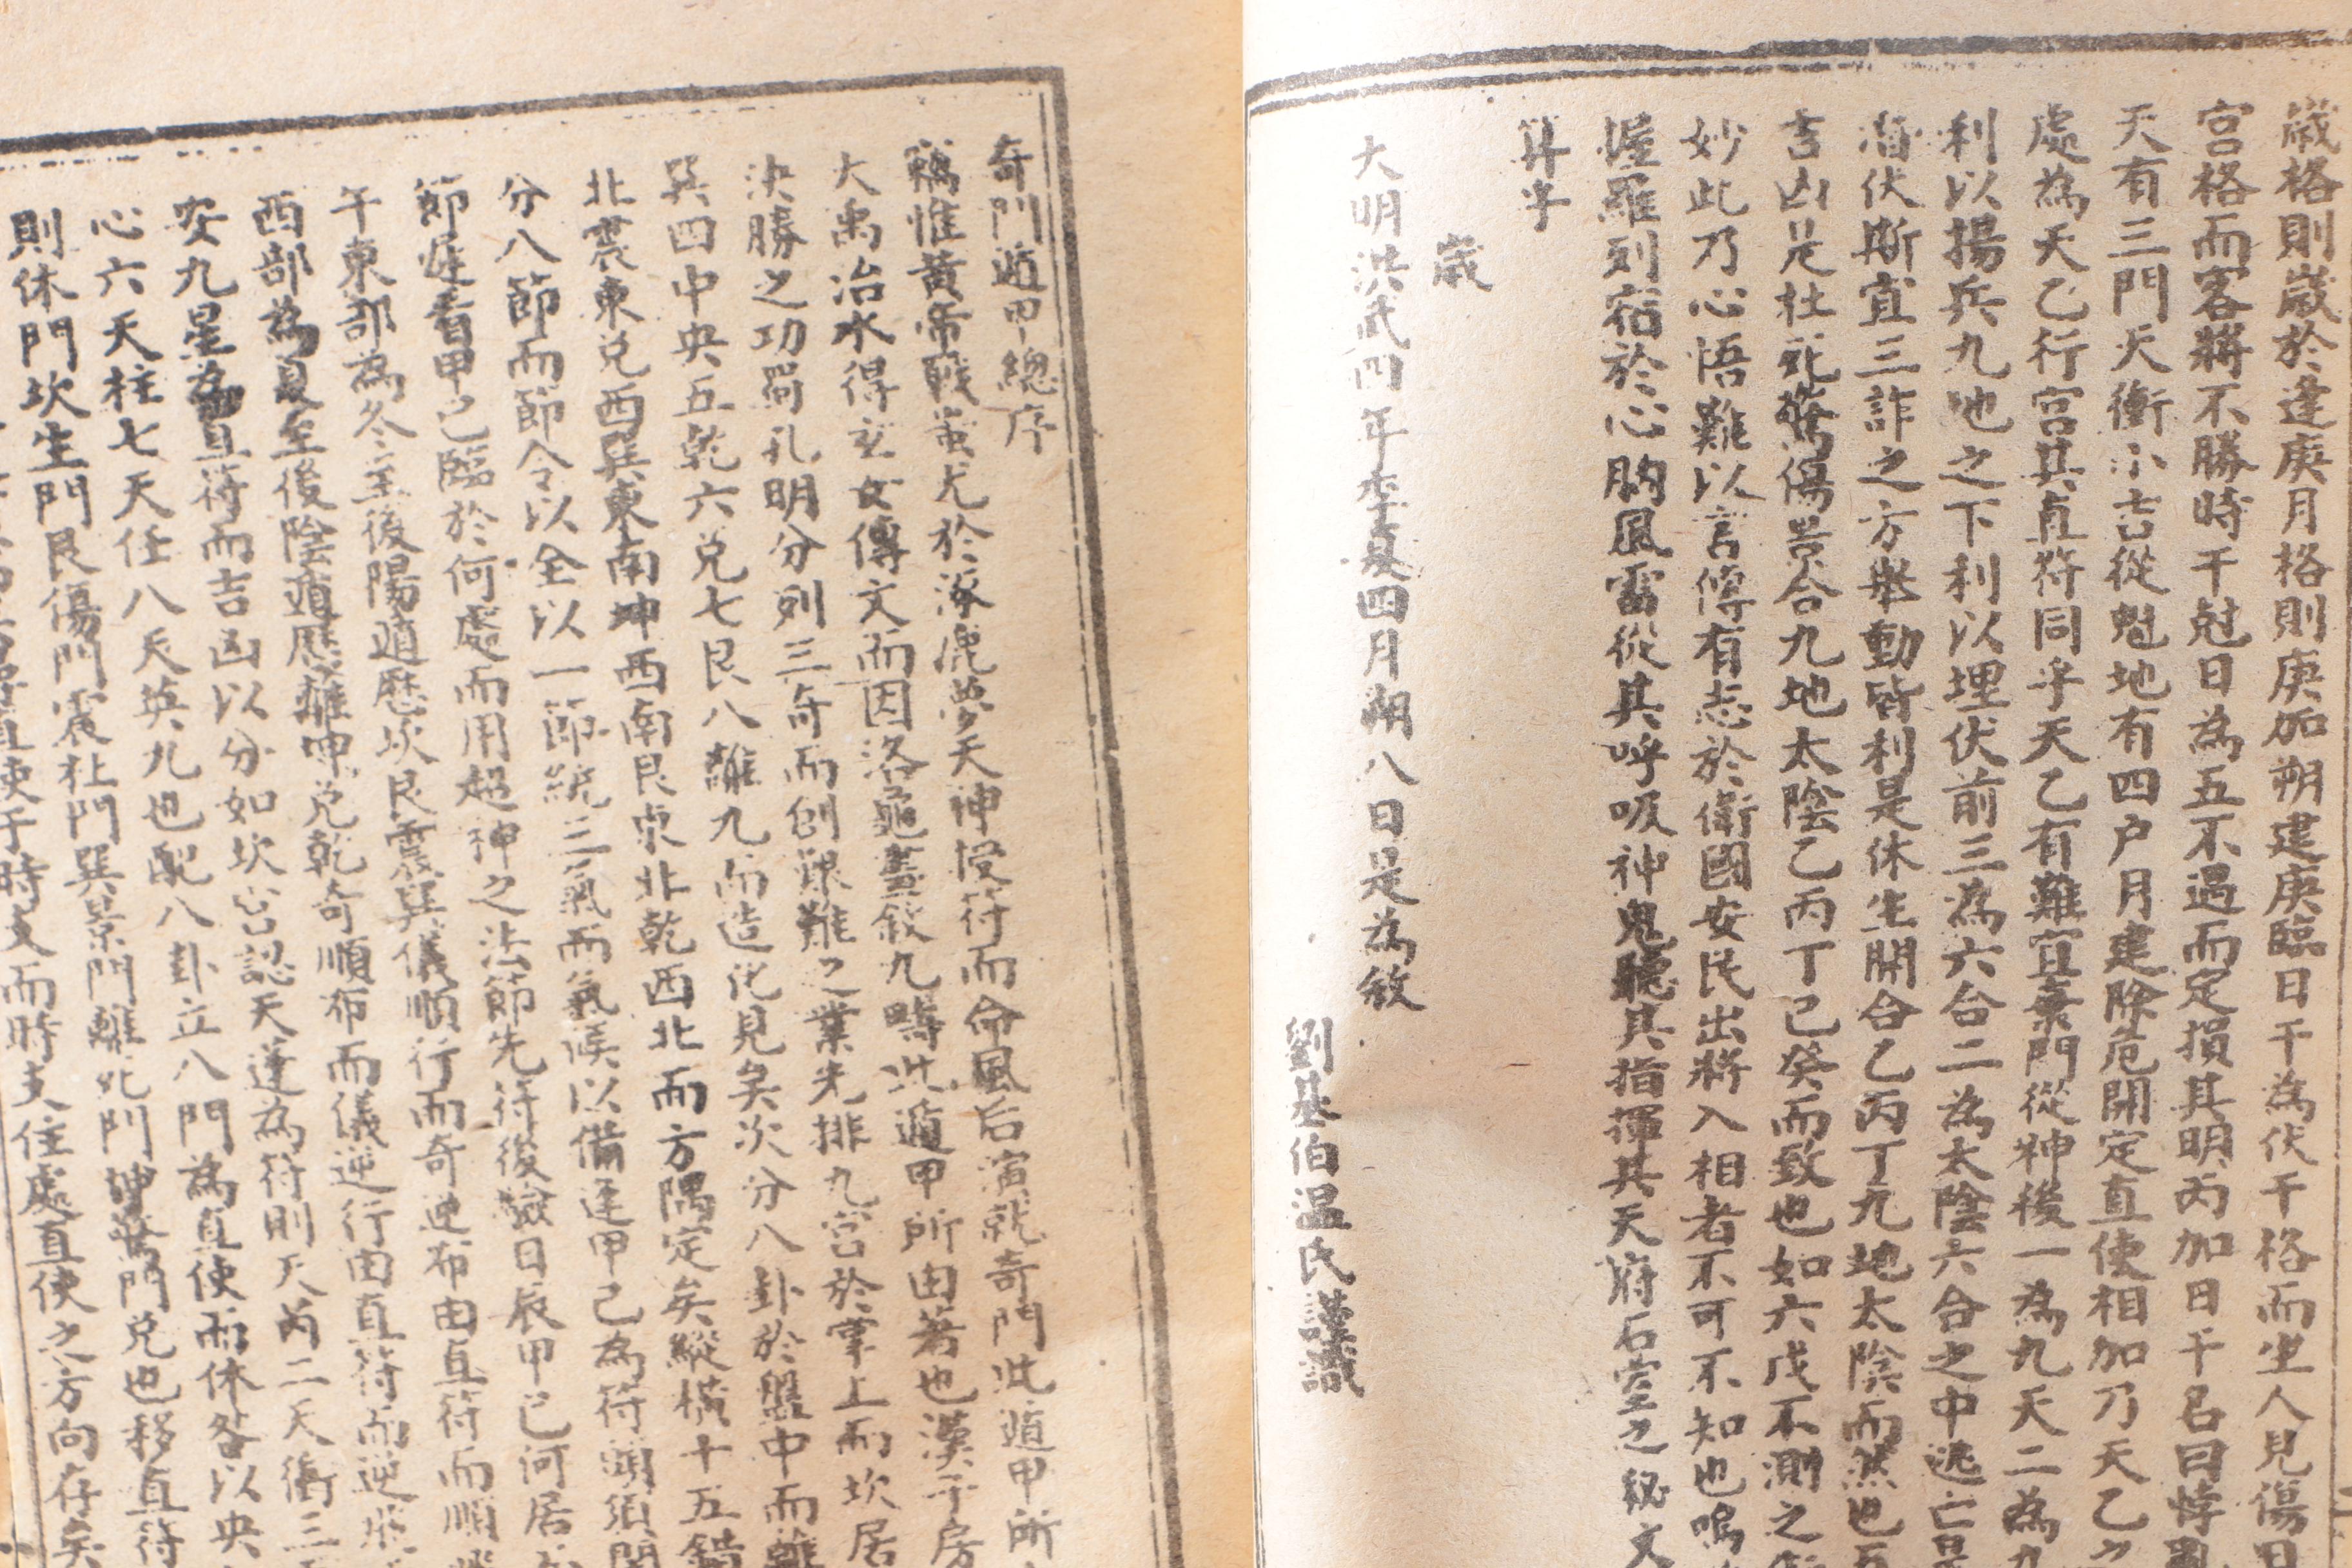 歲格則歲於逢庚月格則庚加朔建庚臨日干為伏干格而坐人見傷
宮格而客將不勝時干尅日為五不遇而定損其明丙加日干名曰悖
天有三門天衝小吉從魁地有四户月建除危開定直使相加乃天乙
處為天乙行宮其直符同乎天乙有難宜棄門從神後一為九天二為九
利以揚兵九地之下利以埋伏前三為六合二為太陰六合之中逃亡
潛伏斯宜三詐之方舉動皆利是休生開合乙丙丁九地太陰而然也
吉凶是杜死驚傷景合九地太陰乙丙丁己癸而致也如六戊不測之
妙此乃心悟難以言傳有志於衛國安民出將入相者不可不知也嗚
渥羅列宿於心胸風雷從其呼吸神鬼聽其指揮其天府石室之秘文
歲
大明洪武四年季夏四月朔八日是為敘
劉基伯溫氏謹識
奇門遁甲總序
竊惟黃帝戰蚩尤於涿鹿夢天神授符而命風后演就奇門此遁甲所
大禹治水得玄女傳文而因洛龜畫敘九疇此遁甲所由著也漢子房
決勝之功蜀孔明分列三奇而創艱難之業先排九宮於掌上而坎居
巽四中央五乾六兌七艮八離九而造化見矣次分八卦於盤中而離
北震東兌西巽東南坤西南艮東北乾西北而方隅定矣縱橫十五錯
分八節而節令以全以一節統三氣而氣候以備逢甲己為符頭須
節遲看甲己臨於何處而用超神之法節先符後驗日辰甲己何居
午東部為冬至後陽遁歷坎艮震巽儀順行而奇逆布由直符而順
酉部為夏至後陰遁歷離坤兌乾奇順布而儀逆行由直符而逆
安九星為直符而吉凶以分如坎宮認天蓬為符則天芮二天衝三
心六天柱七天任八天英九也配八卦立八門為直使而休咎以央
則休門坎生門艮傷門震杜門巽景門離死門坤驚門兌也移直符
直使于時支而時支住處直使之方向存矣